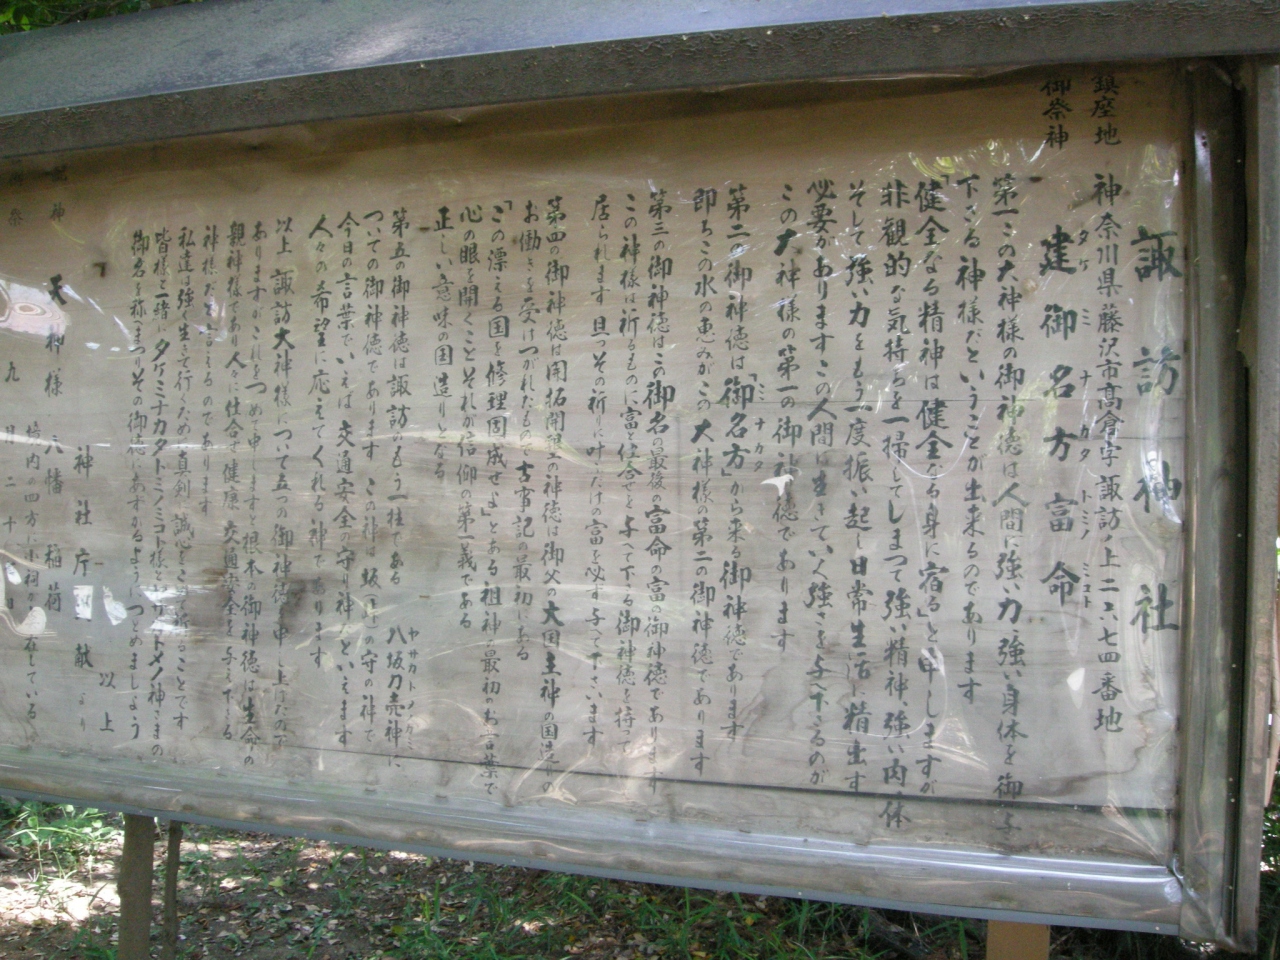 諏訪神社
鎮座地 神奈川県藤沢市高倉字諏訪ノ上二六七四番地
御祭神 建御名方富命
タケ ミ ナ カタ トミノ ミコト
第一この大神様の御神徳は人間に強い力強い身体を御
下さる神様だということが出来るのであります
「健全なる精神は健全なる身に宿る」と申しますが
非観的な気持ちを一掃してしまって強い精神、強い肉体
そして強い力をもう一度振い起し日常生活に精出す
必要がありますこの人間に生きていく強さを与へ下さるのが
この大神様の第一の御神徳であります
第二の御神徳は「御名方」から来る御神徳であります
ミ ナ カタ
即ちこの水の恵みがこの大神様の第二の御神徳であります
第三の御神徳はこの御名の最後の富命の富の御神徳であります
この神様は祈るものに富と仕合せとを与へて下る御神徳を持って
居られます且つその祈りに叶うだけの富を必ず与へて下さいます
第四の御神徳は開拓開墾の神徳は御父の大国主神の国造りの
お働きを受けつがれたもので古事記の最初にある
「この漂える国を修理固成せよ」とある祖神の最初のお言葉で
心の眼を開くことそれが信仰の第一義である
正しい意味の国造りとなる
第五の御神徳は諏訪のもう一柱である 八坂刀売神に
ヤサカトメノカミ
ついての御神徳であります この神は坂(主)の守の神で
今日の言葉でいえば交通安全の守り神といえます
人々の希望に応えてくれる神であります
以上 諏訪大神様について五つの御神徳を申し上げたので
ありますがこれをつめて申しますと根本の御神徳は生命の
親神様であり人々に仕合せ健康 交通安全を与えて下さる
神様だと言えるのであります
私達は強く生きて行くため真剣に誠心をこめて祈ることです
皆様と一緒にタケミナカタトミノミコト様とヤサカトメノ神さまの
御名を称へまつりその御徳にあずかるようにつとめましよう
以上
神社庁 献 より
天神様 八幡 稲荷 境内の四方に小祠 在している
祭 九月二十